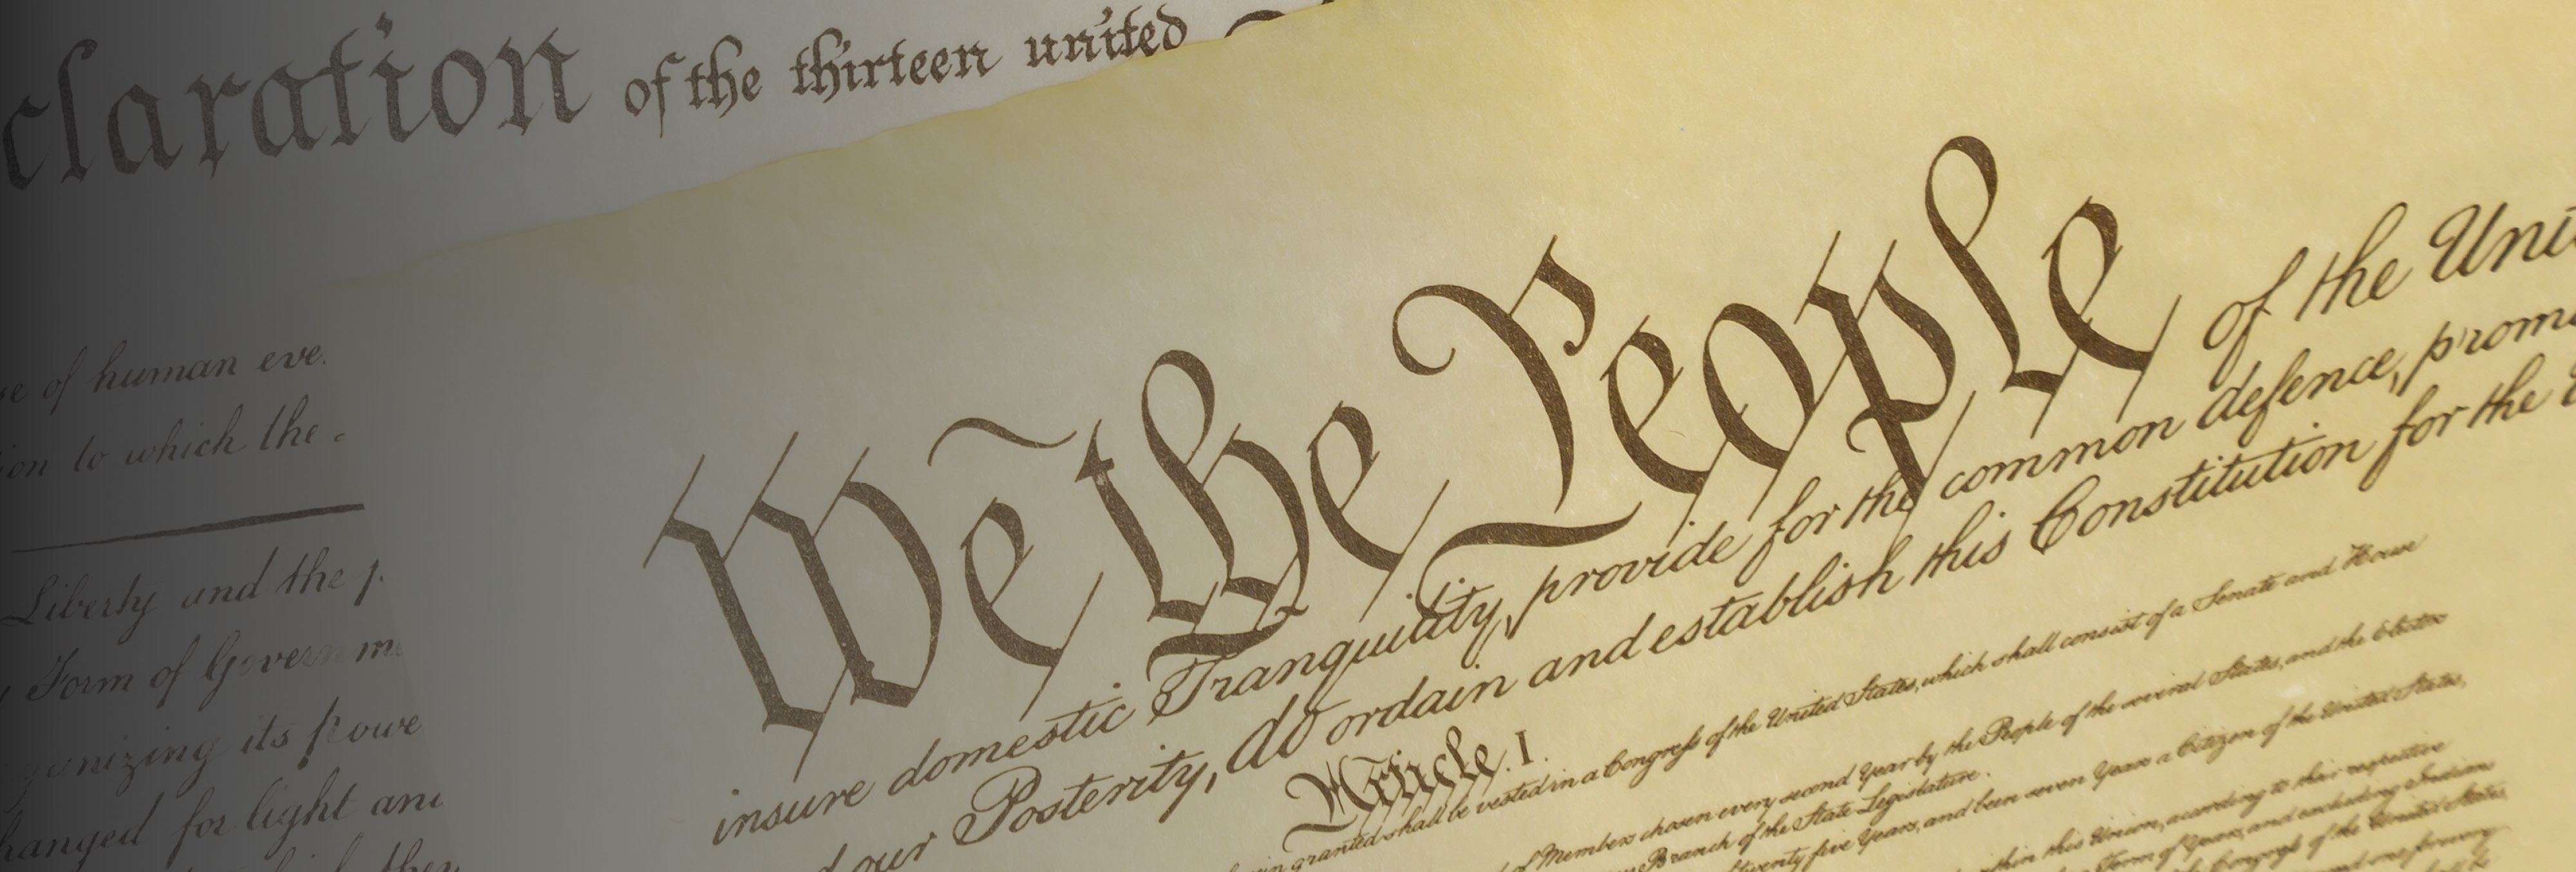 claration of the thirteen united
se of human eve
ion to which the
Liberty and the p
Form of Governme
ganizing its powe
hanged for light an
We the People of the Uni
insure domestic Tranquility, provide for the common defence, prom
our Posterity, do ordain and establish this Constitution for the
Article. I.
granted shall be vested in a Congress of the United States, which shall consist of a Senate and House
of Members chosen every second Year by the People of the several States, and the Electors
Branch of the State Legislature.
twenty five Years, and been seven Years a Citizen of the United States,
within this Union, according to their respective
Term of Years, and excluding Indians
Congress of the United States,